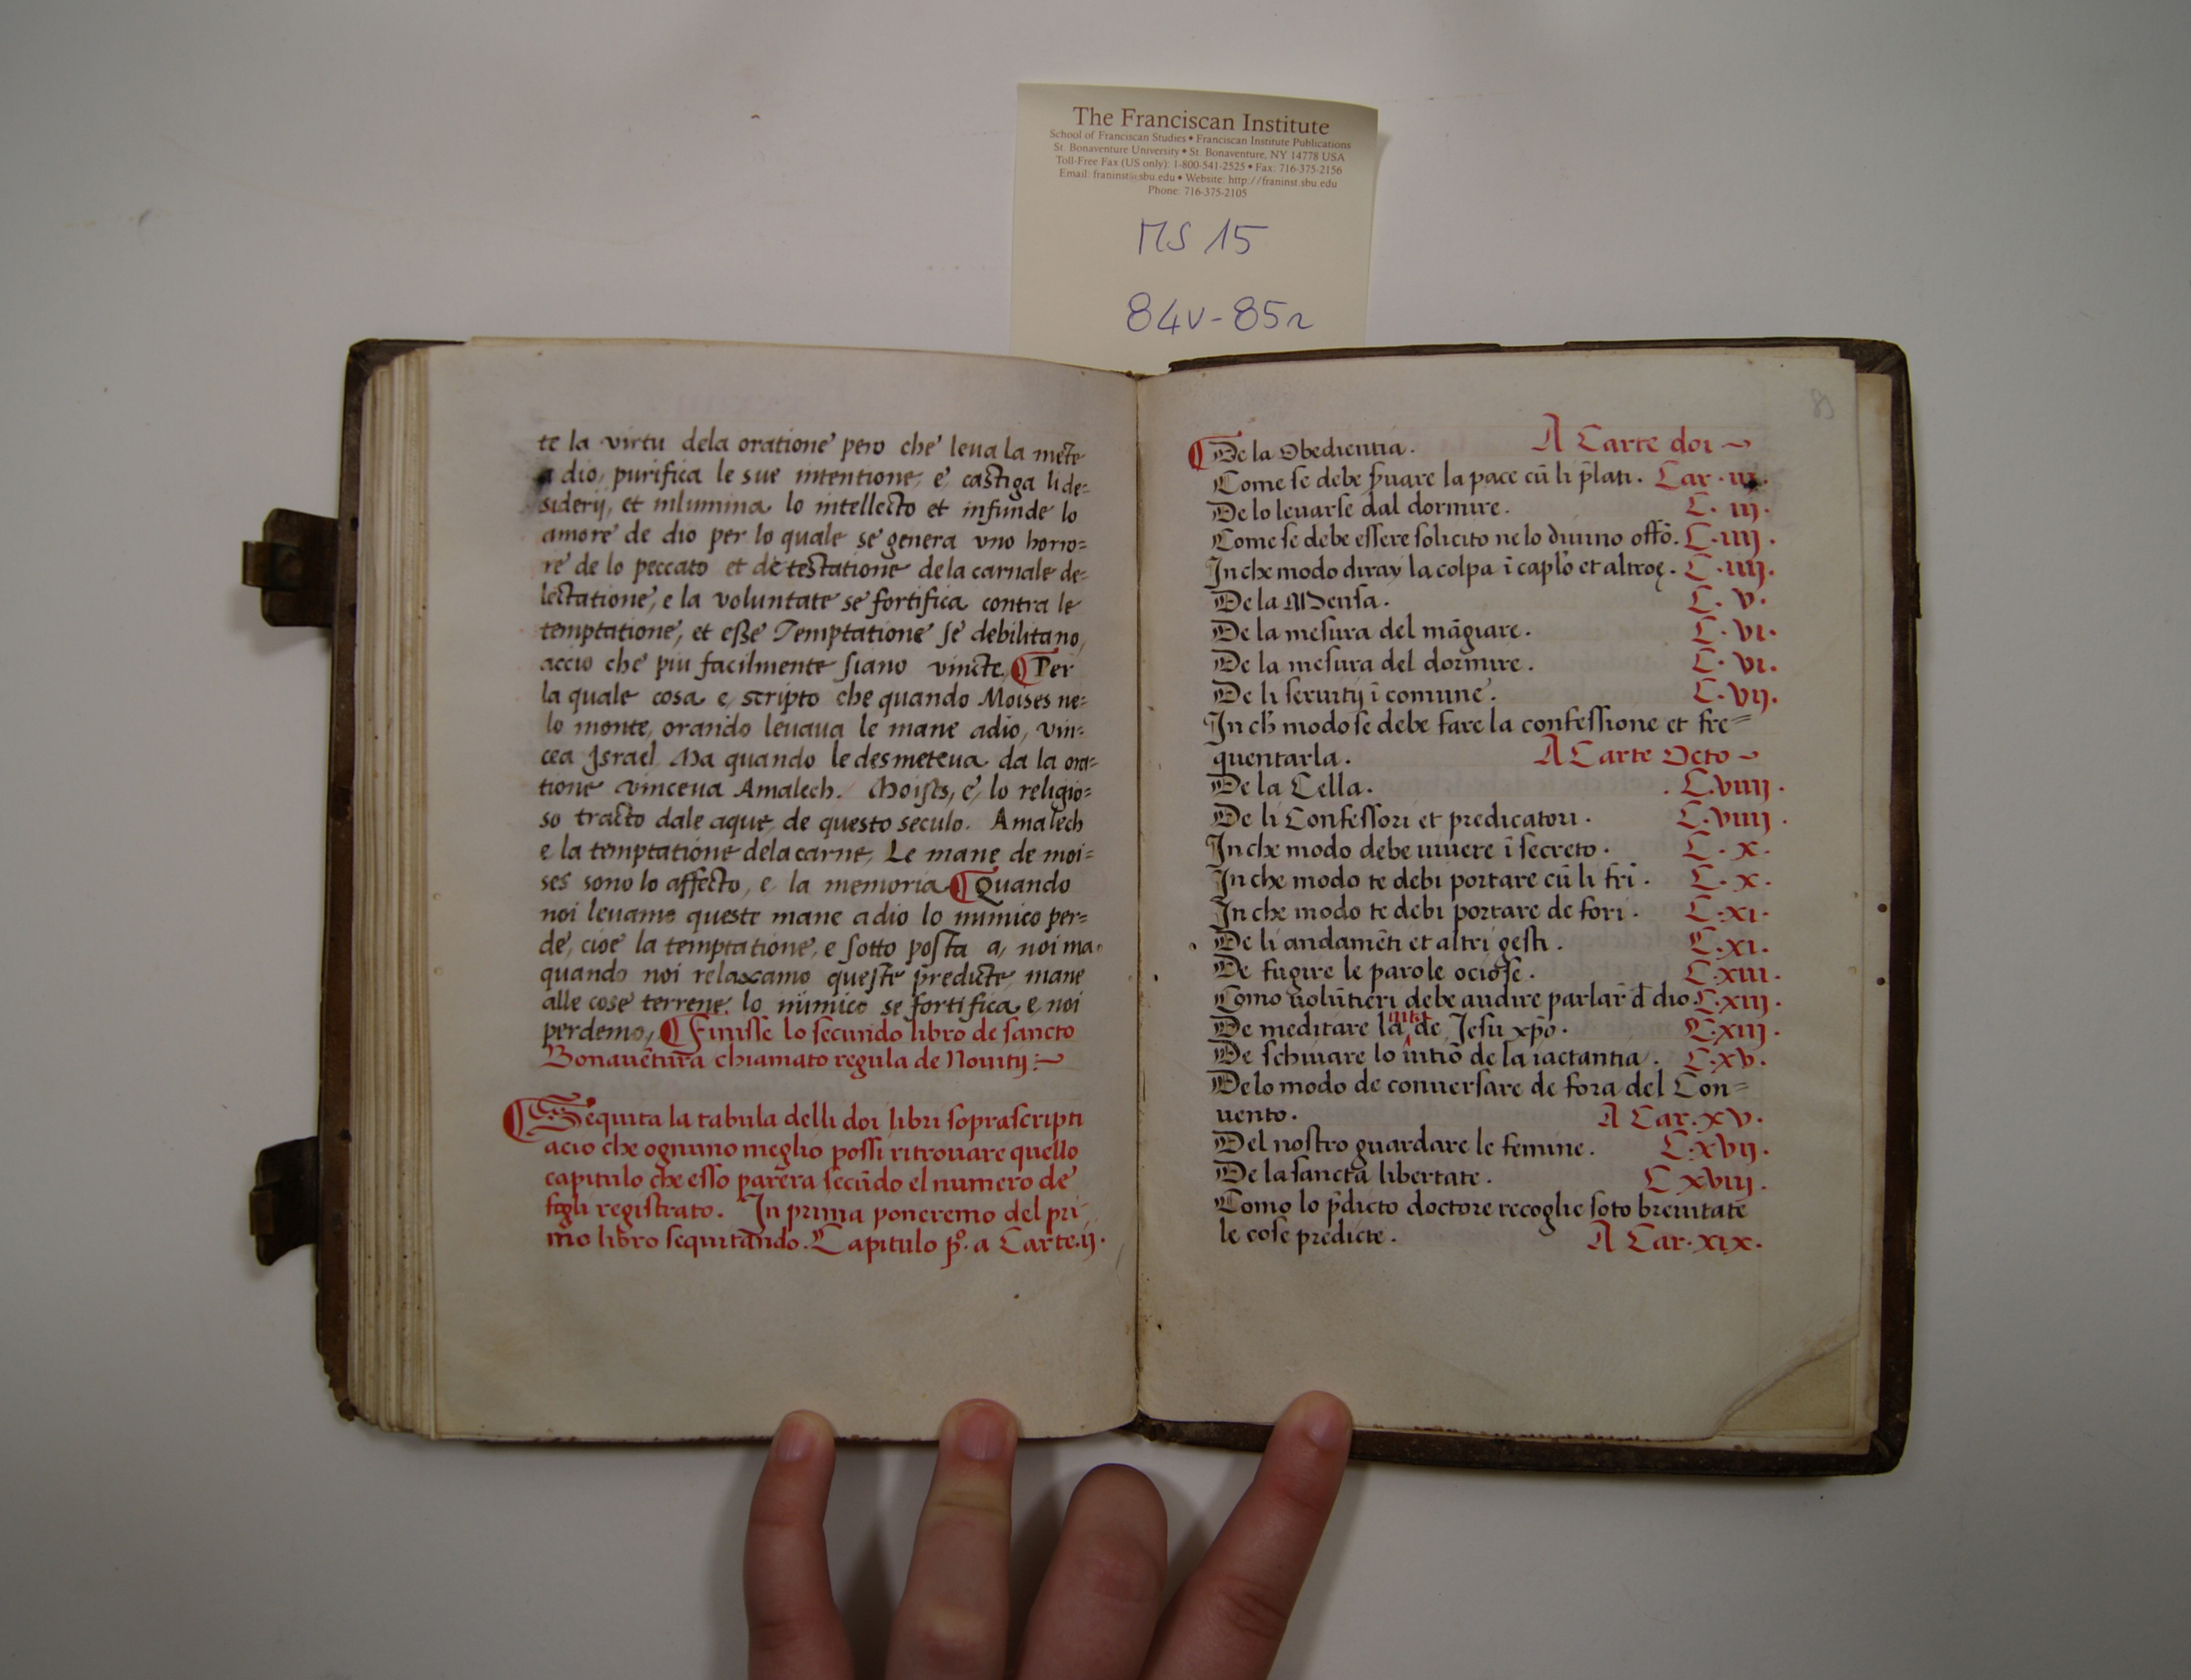 The Franciscan Institute
School of Franciscan Studies • Franciscan Institute Publications
St. Bonaventure University • St. Bonaventure, NY 14778 USA
Toll-Free Fax (US only): 1-800-541-2525 • Fax: 716-375-2156
Email: franinst@sbu.edu • Website: http://franinst.sbu.edu
Phone: 716-375-2105
MS 15
84v-85r
te la virtu dela oratione pero che leua la mēte
a dio, purifica le sue intentione, e castiga li de=
siderij, et inlumina lo intellecto et infunde lo
amore de dio per lo quale se genera uno horro=
re de lo peccato et de testatione de la carnale de=
lectatione, e la voluntate se fortifica contra le
temptatione, et esse Temptatione se debilitano,
accio che piu facilmente siano vincte. Per
la quale cosa e scripto che quando Moises ne=
lo monte, orando leuaua le mane adio, vin=
cea Israel. Ma quando le desmeteua da la ora=
tione vinceua Amalech. Moises, e, lo religio=
so tracto dale aque, de questo seculo. Amalech
e la temptatione dela carne, Le mane de moi=
ses sono lo affecto, e, la memoria Quando
noi leuamo queste mane a dio lo inimico per=
de, cioe la temptatione, e sotto posta a, noi ma.
quando noi relaxamo queste predicte, mane
alle cose terrene. lo inimico se fortifica e noi
perdemo, Finisse lo secundo libro de sancto
Bonauētura chiamato regula de Nouitij:~
Sequita la tabula delli doi libri soprascripti
acio che ognuno meglio possi ritrouare quello
capitulo che esso parera secūdo el numero de
fogli registrato. In prima poneremo del pri
mo libro sequitando. Capitulo pº. a Carte.ij.
85
De la Obedientia. A Carte doi ~
Come se debe ꝑuare la pace cū li p̄lati. Car.
De lo leuarse dal dormire. C. iij.
Come se debe essere solicito ne lo diuino offō. C.iiij.
In che modo diray la colpa ī caplo et altroꝫ. C.iiij.
De la Mensa. C. v.
De la mesura del māgiare. C. vi.
De la mesura del dormire. C. vi.
De li seruitij ī comune. C. vij.
In ch̄ modo se debe fare la confessione et fre=
quentarla. A Carte Octo ~
De la Cella. C.viiij.
De li Confessori et predicatori. C.viiij.
In che modo debe uiuere ī secreto. C. x.
In che modo te debi portare cū li fr̄i. C. x.
In che modo te debi portare de fori. C.xi.
De li andamēti et altri gesti. C.xi.
De fugire le parole ociose. C.xiii.
Como uolūtieri debe audire parlar d̄ dio. C.xiij.
De meditare la de Jesu xp̄o. C.xiij.
De schiuare lo uitiō de la iactantia. C.xv.
De lo modo de conuersare de fora del Con=
uento. A Car.xv.
Del nostro guardare le femine. C.xvij.
De la sancta libertate. C xviij.
Como lo p̄dicto doctore recoglie soto breuitate
le cose predicte. A Car.xix.